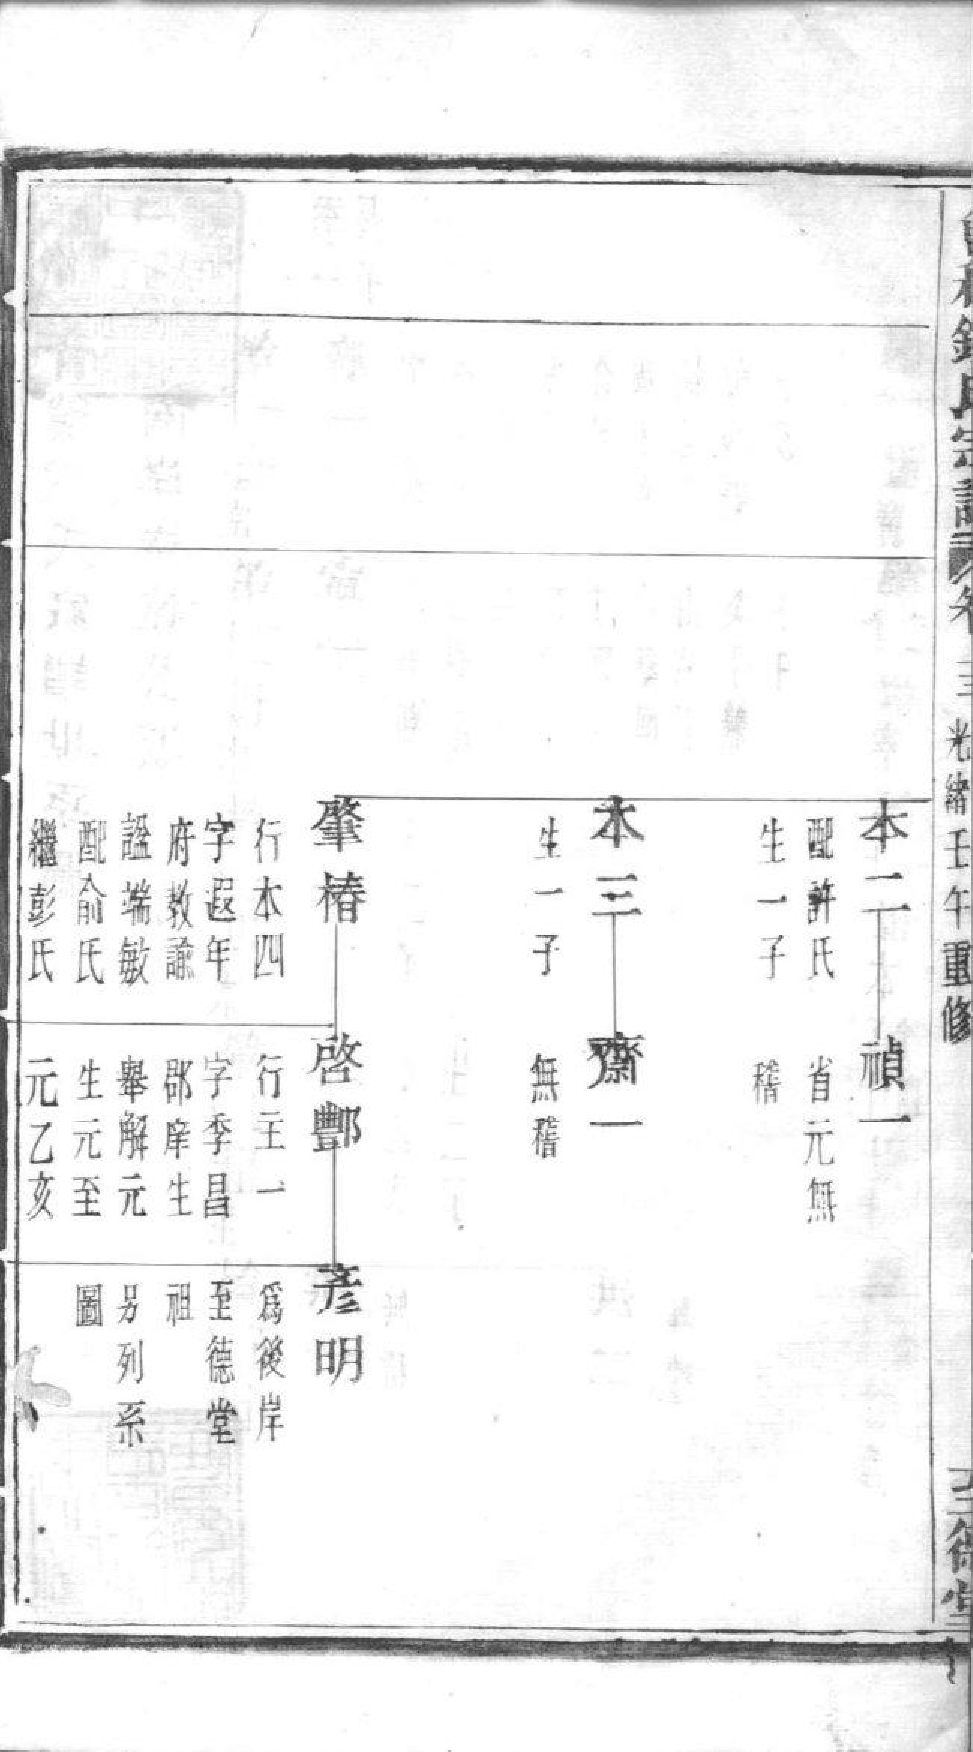 氏宗譜
卷
三
光緒壬午重修
至德堂
本二
配許氏
生一子
禎一
省元無
稽
本三
生一子
齋一
無稽
肇椿
行本四
字遐年
府教諭
諡端敏
配俞氏
繼彭氏
啓酆
行王一
字季昌
郡庠生
舉解元
生元至
元乙亥
彦明
爲後岸
至德堂
祖
另列系
圖